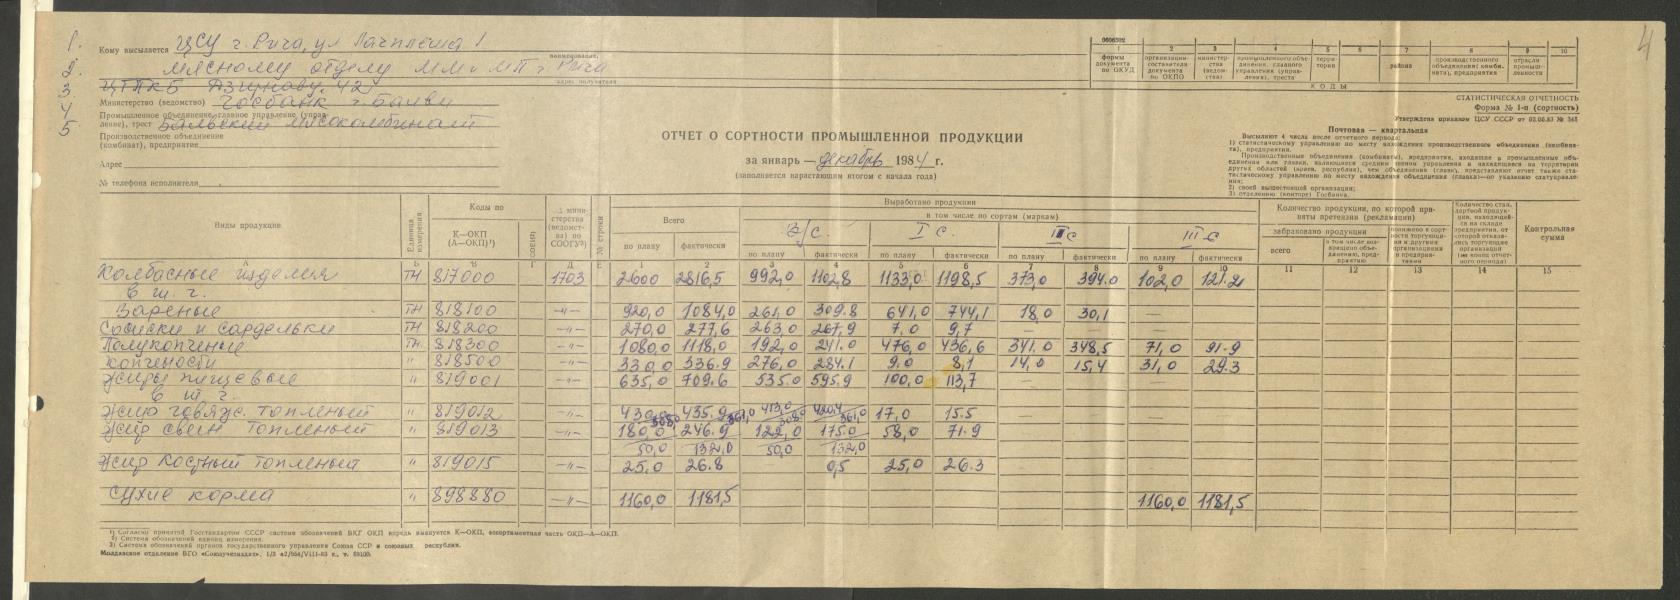 4
1.
2.
3
4
5.
Кому высылается ЦСУ г. Рига, ул Лачплеша 1
наименование,
мясному отделу ММ и МП г. Рига
адрес получателя
Министерство (ведомство) Госбанк г. Балви
Промышленное объединение, главное управление (управ-
ление), трест Балвский мясокомбинат
Производственное объединение
(комбинат), предприятие
Адрес
№ телефона исполнителя
0606302
1 2 3 4 5 6 7 8 9 10
формы документа по ОКУД
организации-составителя документа по ОКПО
министерства (ведомства)
промышленного объединения, главного управления (управления), треста
территории
района
производственного объединения (комбината), предприятия
отрасли промышленности
КОДЫ
СТАТИСТИЧЕСКАЯ ОТЧЕТНОСТЬ
Форма № 1-п (сортность)
Утверждена приказом ЦСУ СССР от 02.06.83 № 348
Почтовая — квартальная
Высылают 4 числа после отчетного периода:
1) статистическому управлению по месту нахождения производственного объединения (комбина-
та), предприятия.
Производственные объединения (комбинаты), предприятия, входящие в промышленные объ-
единения или главки, являющиеся средним звеном управления и находящиеся на территории
других областей (краев, республик), чем объединения (главки), представляют отчет также ста-
тистическому управлению по месту нахождения объединения (главка)—по указанию статуправле-
ния;
2) своей вышестоящей организации;
3) отделению (конторе) Госбанка.
ОТЧЕТ О СОРТНОСТИ ПРОМЫШЛЕННОЙ ПРОДУКЦИИ
за январь — декабрь 1984 г.
(заполняется нарастающим итогом с начала года)
Виды продукции
Единица измерения
Коды по
К—ОКП
(А—ОКП)¹)
СОЕИ²)
министерства (ведомства) по СООГУ³)
№ строки
Выработано продукции
Всего
в том числе по сортам (маркам)
в/с. I с. II с III с
по плану фактически по плану фактически по плану фактически по плану фактически по плану фактически
Количество продукции, по которой при-
няты претензии (рекламации)
забраковано продукции
всего
в том числе возвращено объединению, предприятию
понижено в сорте торгующими и другими организациями и предприятиями
Количество стандартной продукции, находящейся на складе предприятия, от которой отказались торгующие организации (на конец отчетного периода)
Контрольная
сумма
А Б В Г Д Е 1 2 3 4 5 6 7 8 9 10 11 12 13 14 15
Колбасные изделия тн 817000 1703 2600 2816,5 992,0 1102,8 1133,0 1198,5 373,0 394.0 102,0 121.2
в т. г.
Вареные тн 818100 —"— 920,0 1084,0 261,0 309.8 641,0 744,1 18,0 30,1 —
Сосиски и сардельки тн 818200 —"— 270,0 277,6 263,0 267,9 7,0 9,7 — — —
Полукопченые тн 818300 —"— 1080,0 1118,0 192,0 241.0 476,0 436,6 341.0 348,5 71,0 91.9
Копчености " 818500 —"— 330,0 336.9 276,0 284.1 9.0 8,1 14,0 15,4 31,0 29.3
Жиры пищевые " 819001 —"— 635,0 709.6 535.0 595.9 100,0 113,7 — —
в т. г.
Жир говяж. топленый " 819012 —"— 430,0 435.9 413,0 420,4 17,0 15.5
368,0 361,0 308,0 361,0
Жир свин топленый " 819013 —"— 180,0 246.9 122,0 175.0 58,0 71.9
50,0 132,0 50,0 132,0
Жир Костный топленый " 819015 —"— 25,0 26.8 0,5 25,0 26.3
Сухие корма " 898880 —"— 1160,0 1181,5 1160,0 1181,5
¹) Согласно принятой Госстандартом СССР системе обозначений ВКГ ОКП впредь именуется К—ОКП, ассортиментная часть ОКП—А—ОКП.
²) Система обозначений единиц измерения.
³) Система обозначений органов государственного управления Союза ССР и союзных республик.
Молдавское отделение ВГО «Союзучетиздат».